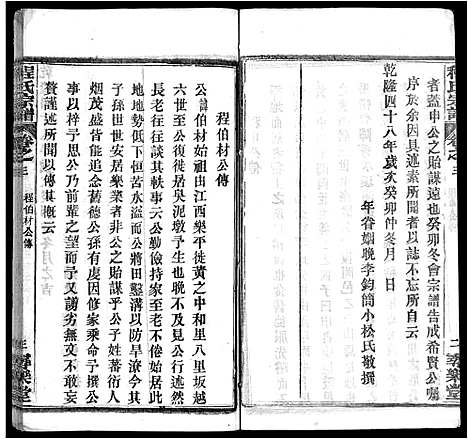 程氏宗譜
卷之三
二
秀樂堂
者蓋申公之貽謀遠也癸卯冬會宗譜告成希賢公囑
序於余因具述素所聞者以誌不忘所自云
乾隆四十八年歲次癸卯仲冬月日
年眷姻晚李鈞簡小松氏敬撰
程伯材公傳
公諱伯材始祖出江西樂平徙黃之中和里八里坂越
六世至公復徙居吳泥墩予生也晚不及見公行述然
長老往往談其軼事云公勤儉持家至老不倦始居此
地地勢低下恒苦水溢而公將田鑿溝以防旱潦今其
子孫世世安居樂業者非公之貽謀乎公子姓蕃衍人
烟茂盛皆食舊德公孫有虔因修家乘命予撰公
事以梓予思公乃前輩之望而予又譾劣無文不敢妄
贅謹述所聞以傳其概云
程氏宗譜
卷之三
程伯材公傳
三
秀樂堂